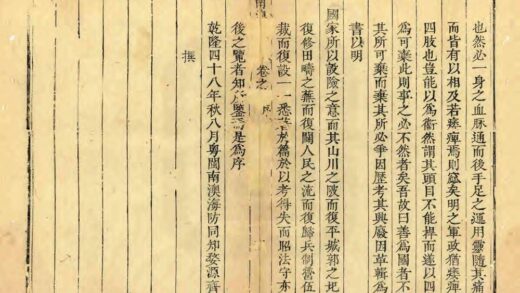 也然必一身之血脉通而後手足之運用靈隨其痛
而皆有以相及若痿痺焉則窒矣明之軍政猶痿痺
四肢也豈能以為衛然謂其頭目不能捍而遂以四
為可棄此則事之必不然者矣吾故曰善為國者不
其所可棄而棄其所必爭因歷考其興廢因革輯為
書以明
國家所以設險之意而其山川之陂而復平城郭之圮
復修田疇之蕪而復闢人民之流而復歸兵制營伍
裁而復設一一悉著於篇於以考得失而昭法守亦
卷之 序
後之覽者知所鑒焉是為序
乾隆四十八年秋八月粵閩南澳海防同知婺源齊
撰